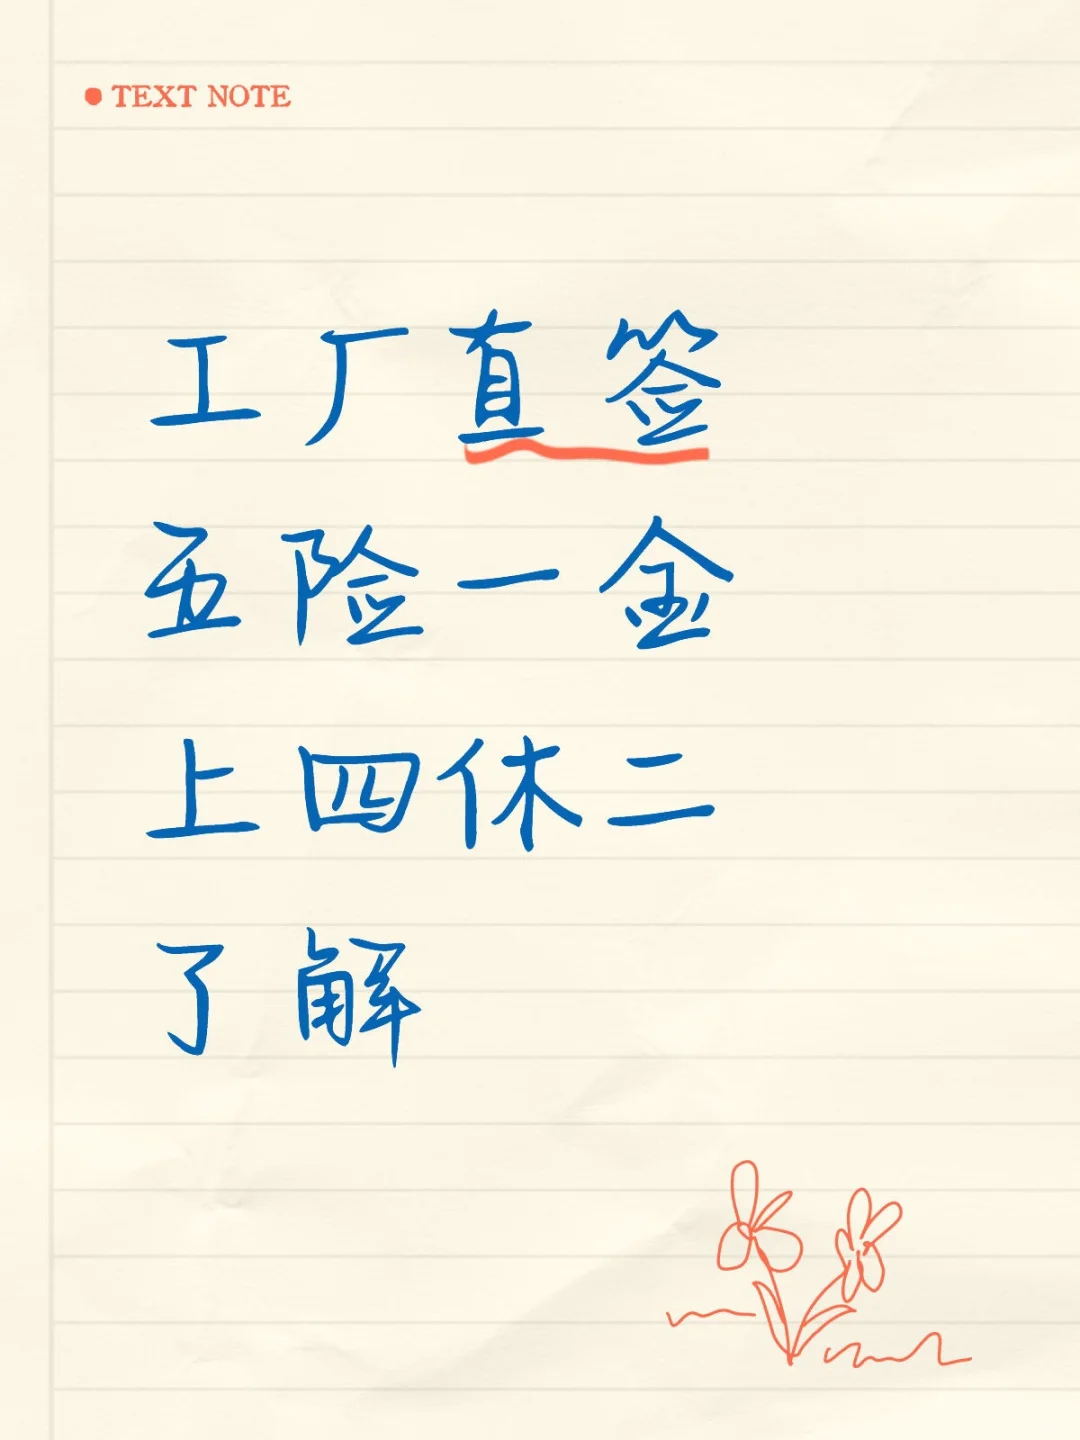 TEXT NOTE
工厂直签
五险一金
上四休二
了解